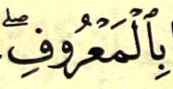 بِٱلْمَعْرُوفِۖ